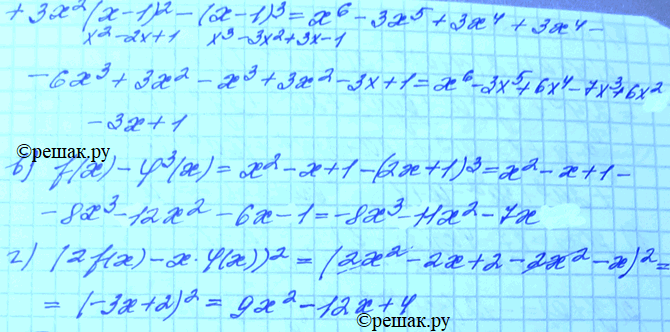 + 3x²(x-1)² - (x-1)³ = x⁶ - 3x⁵ + 3x⁴ + 3x⁴ -
x²-2x+1 x³-3x²+3x-1
- 6x³ + 3x² - x³ + 3x² - 3x + 1 = x⁶ - 3x⁵ + 6x⁴ - 7x³ + 6x²
- 3x + 1
©решак.ру
в) f(x) - φ³(x) = x² - x + 1 - (2x+1)³ = x² - x + 1 -
- 8x³ - 12x² - 6x - 1 = -8x³ - 11x² - 7x
г) (2f(x) - x·φ(x))² = (2x² - 2x + 2 - 2x² - x)² =
= (-3x+2)² = 9x² - 12x + 4
©решак.ру